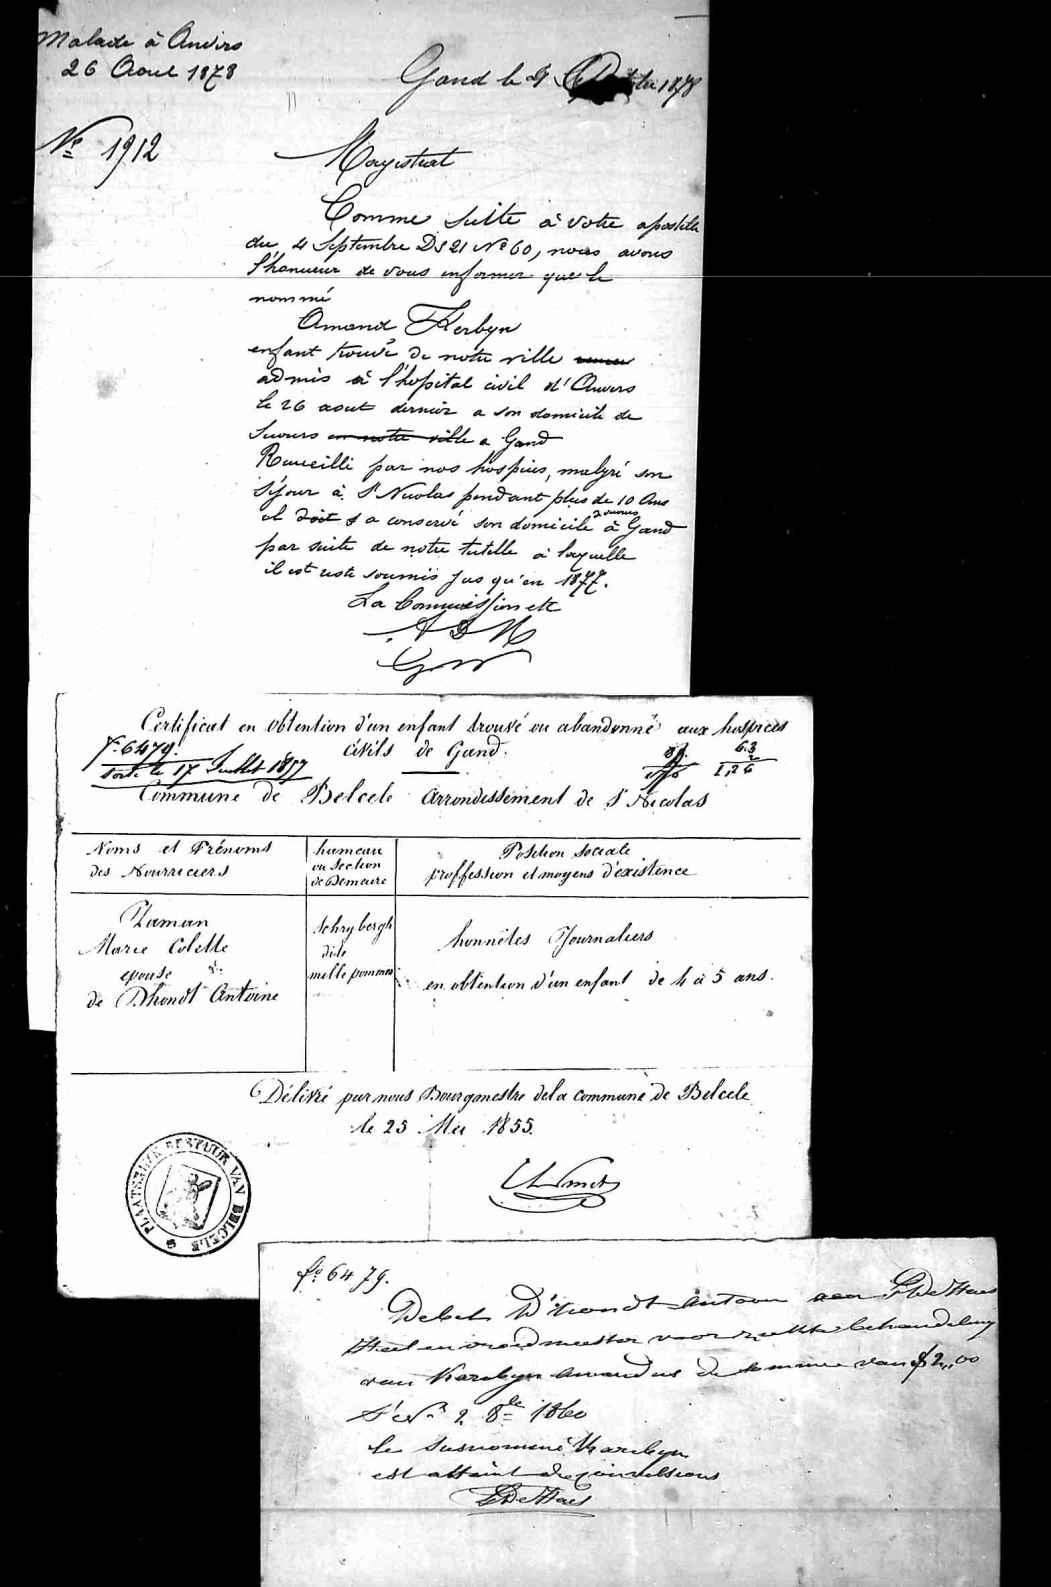 Malade à Anvers
26 Aout 1878
Gand le 9 1878
N° 1912
Magistrat
Comme suite à votre apostille
du 4 Septembre Ds 21 N° 60, nous avons
l'honneur de vous informer que le
nommé
Amand Kerbyn
enfant trouvé de notre ville
admis à l'hopital civil d'Anvers
le 26 aout dernier a son domicile de
secours en notre ville a Gand
Recueilli par nos hospices, malgré son
séjour à St Nicolas pendant plus de 10 Ans
il doit a conservé son domicile de secours à Gand
par suite de notre tutelle à laquelle
il est resté soumis jusqu'en 1877.
La Commission etc
Certificat en obtention d'un enfant trouvé ou abandonné aux hospices
civils de Gand.
f° 6479.
sorti le 17 Juillet 1877
63
2
1,26
Commune de Belcele arrondissement de St Nicolas
Noms et Prénoms
des Nourriciers
hameau
ou Section
de Demeure
Position sociale
proffession et moyens d'éxistence
Zaman
Marie Colette
epouse
de Dhondt Antoine
Schrybergh
dite
mille pommes
honnêtes Journaliers
en obtention d'un enfant de 4 à 5 ans.
Délivré par nous Bourgmestre de la commune de Belcele
le 25 Mei 1855.
PLAATSELYK BESTUUR VAN BELCELE
f° 6479.
Debet D'hondt Antoon aen De Haes
Heel en vroedmeester voor ziekte behandeling
van Karelyn Amandus de somme van f 2,,00
St N. 2 8bre 1860
le susnommé Karelyn
est atteint de convulsions
De Haes